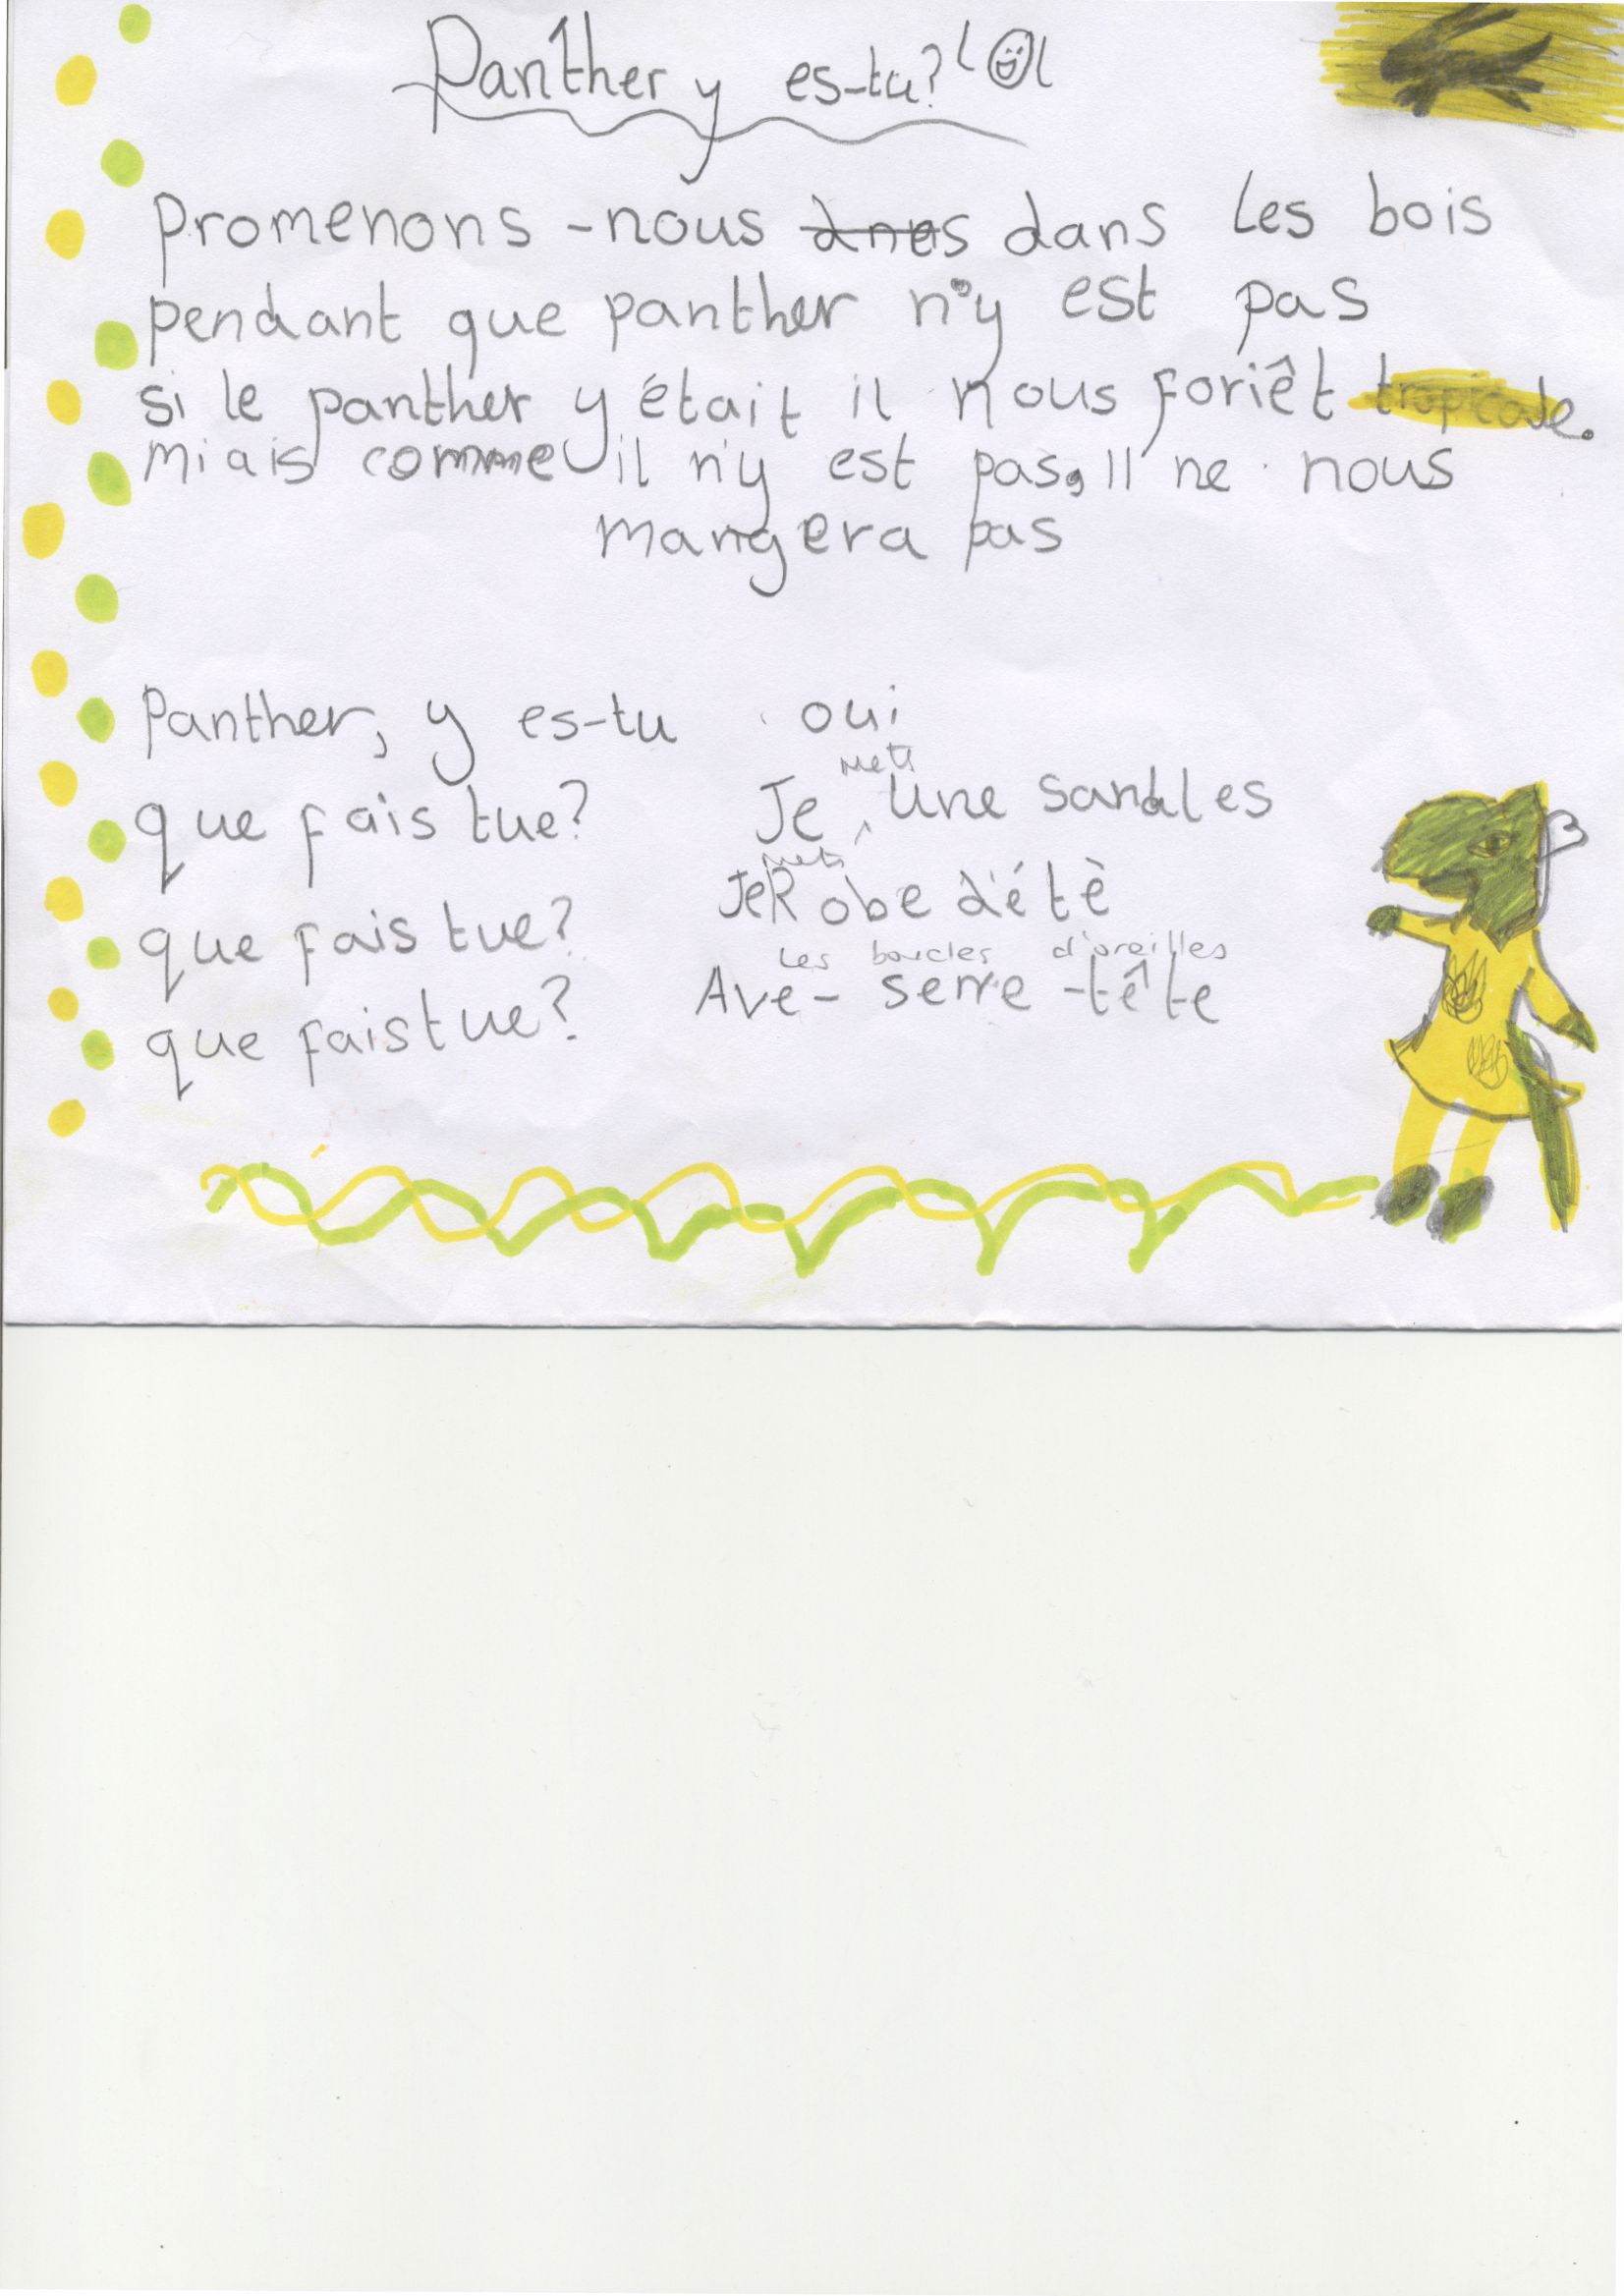 Panther y es-tu? lol
Promenons-nous dnes dans les bois
pendant que panther n'y est pas
si le panther y était il nous foriêt tropicale.
miais comme il n'y est pas, Il ne nous
mangera pas
Panther, y es-tu oui
que fais tue? Je mets une sandles
que fais tue? Je mets Robe d'étè
les boucles d'oreilles
que fais tue? Ave- serre-tête